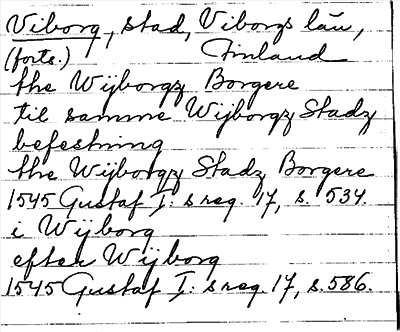 Viborg, stad, Viborgs län,
(forts.) Finland
the Wijborgz Borgere
til samme Wijborgz Stadz
befestning
the Wijborgz Stadz Borgere
1545 Gustaf I: s reg. 17, s. 534.
i Wijborg
efter Wijborg
1545 Gustaf I: s reg. 17, s. 586.